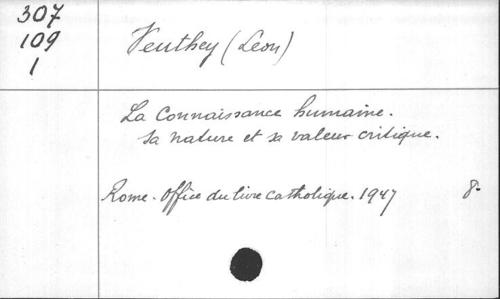 307
109
1
Veuthey (Léon)
La Connaissance humaine.
sa nature et sa valeur critique.
Rome. Office du livre catholique. 1947 8.